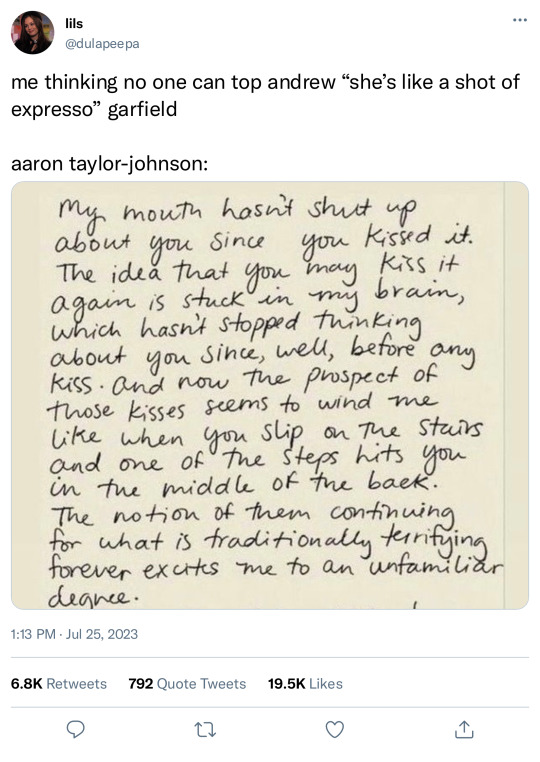 lils
@dulapeepa
me thinking no one can top andrew “she’s like a shot of
expresso” garfield
aaron taylor-johnson:
My mouth hasn't shut up
about you since you kissed it.
The idea that you may kiss it
again is stuck in my brain,
which hasn't stopped thinking
about you since, well, before any
kiss. And now the prospect of
those kisses seems to wind me
like when you slip on the stairs
and one of the steps hits you
in the middle of the back.
The notion of them continuing
for what is traditionally terrifying
forever excites me to an unfamiliar
degree.
1:13 PM · Jul 25, 2023
6.8K Retweets 792 Quote Tweets 19.5K Likes